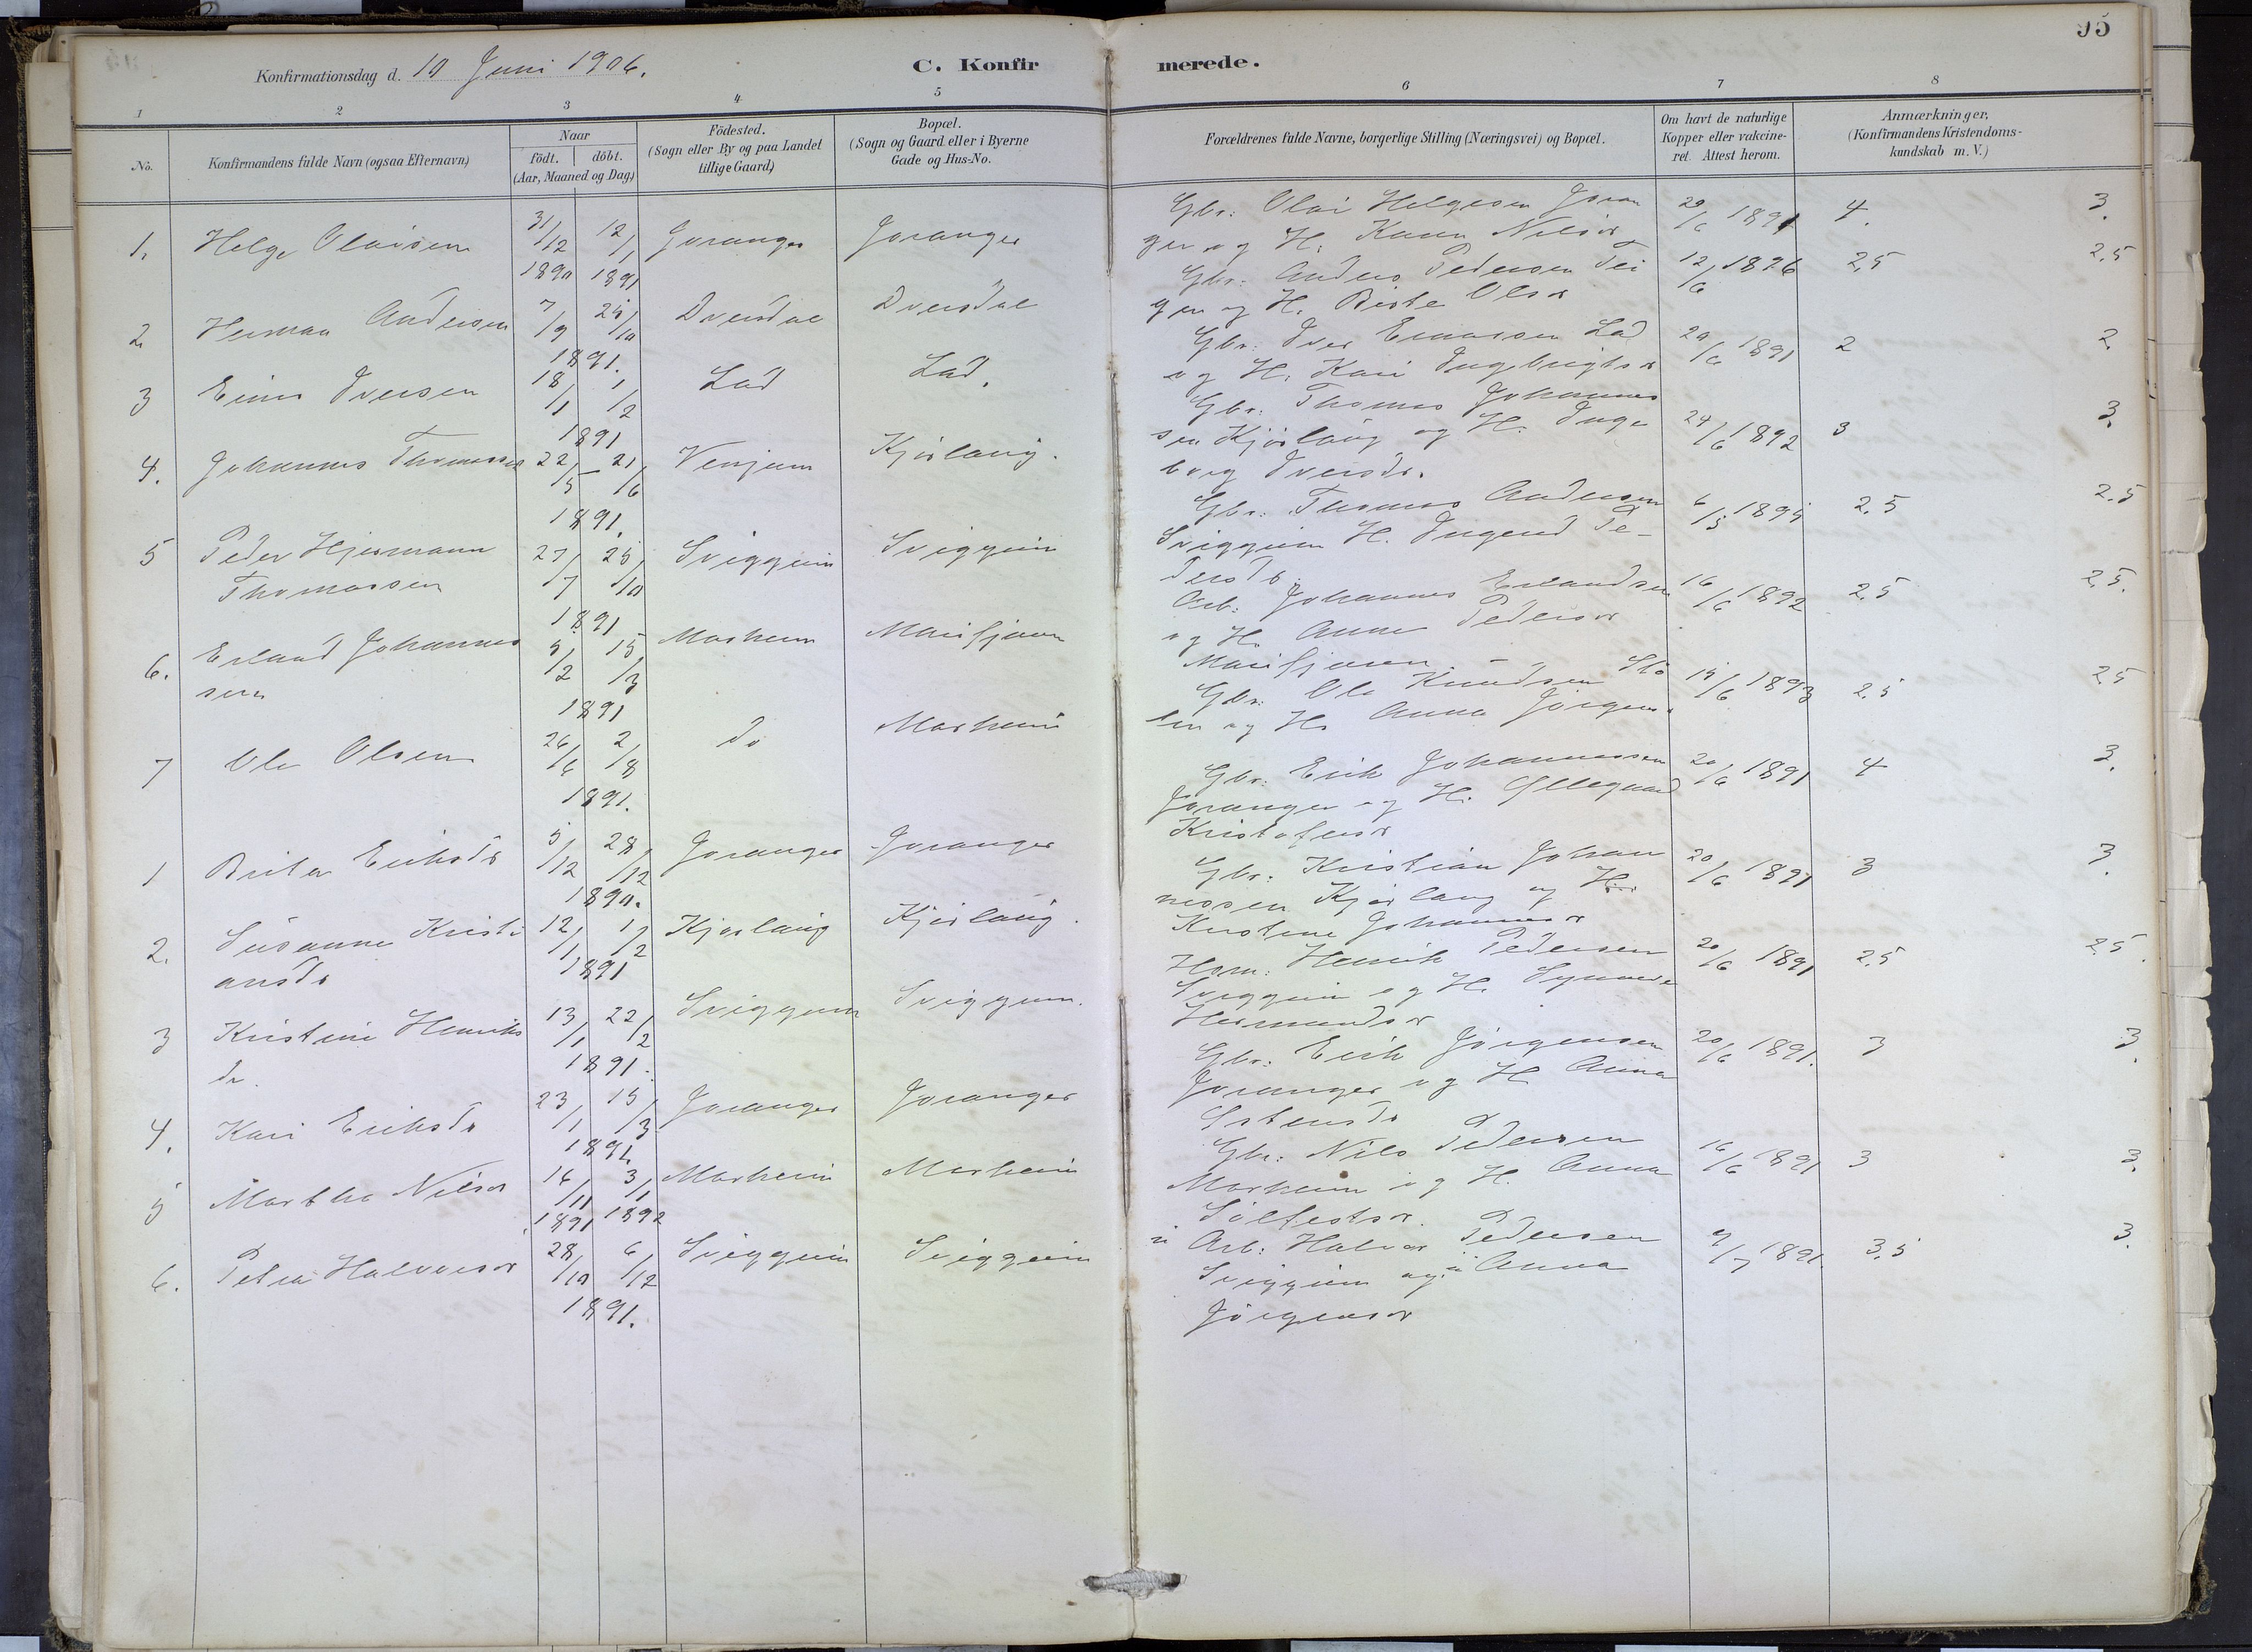 95
Konfirmationsdag d. 10 Juni 1906.
C. Konfirmerede.
1 2 3 4 5 6 7 8
No.
Konfirmandens fulde Navn (ogsaa Efternavn)
Naar
födt. döbt.
(Aar, Maaned og Dag)
Födested.
(Sogn eller By og paa Landet
tillige Gaard)
Bopæl.
(Sogn og Gaard eller i Byerne
Gade og Hus-No.
Forældrenes fulde Navne, borgerlige Stilling (Næringsvei) og Bopæl.
Om havt de naturlige
Kopper eller vakcine-
ret. Attest herom.
Anmærkninger,
(Konfirmandens Kristendoms-
kundskab m. V.)
1. Helge Olaisen 31/12 1890 12/1 1891 Joranger Joranger
Gbr: Olai Helgesen Joran
ger og H. Kann Nilsdr 20/6 1891 4. 3.
2. Herman Andersen 7/9 25/10 1891. Dveisdal Dveisdal
Gbr: Anders Pedersen Tei
gen og H. Birte Olsdr 12/6 1896 2,5 2,5
3 Einer Iversen 18/1 1/2 1891 Lad Lad.
Gbr: Iver Einarsen Lad
og H. Kari Ingbrigtsdr 20/6 1891 2 2.
4. Johannes Thomassen 22/5 - 21/6 1891. Venjum Kjörlaug.
Gbr: Thomas Johannes
sen Kjörlaug og H. Inge
borg Iversdr. 24/6 1892 3 3.
5 Peder Hjermann
Thomassen 27/7 25/10 1891 Sviggum Sviggum
Gbr: Thomas Andersen
Sviggum H. Ingerid Pe-
dersdr. 6/5 1895 2,5 2.5
6. Erland Johannes
sen 5/2 15/3 1891 Marheim Marifjæren
Arb: Johannes Erlandsen
og H. Anna Pedersdr
Marifjæren 16/6 1892 2.5 2.5.
7 Ole Olsen 26/6 2/8 1891. do Marheim
Gbr. Ole Knudsen Stö
len og H. Anna Jörgensdr 15/6 1893 2.5 2.5
1 Brita Eriksdr 5/12 28/12 1890. Joranger Joranger
Gbr: Erik Johannessen
Joranger og H. Ollegaard
Kristofersdr 20/6 1891 4 3.
2. Susanne Kristi
ansdr 12/1 1/2 1891 Kjörlaug Kjörlaug.
Gbr: Kristian Johan
nessen Kjörlaug og H.
Kristine Johannesdr 20/6 1891 3 3.
3 Kristine Henriks
dr. 13/1 22/2 1891. Sviggum Sviggum.
Hsm: Henrik Pedersen
Sviggum og H. Synneve
Hermundsdr 20/6 1891 2.5 2.5.
4. Kari Eriksdr 23/1 15/3 1891. Joranger Joranger
Gbr: Erik Jörgensen
Joranger og H. Anna
Ostensdr 20/6 1891. 3 3.
5 Martha Nilsdr 14/11 1891 3/1 1892 Marheim Marheim
Gbr: Nils Pedersen
Marheim og H. Anna
Sölfestsdr. 16/6 1891 3 3.
6. Petra Halvorsdr 28/10 6/12 1891. Sviggum Sviggum
u Arb: Halvor Pedersen
Sviggum og u Anna
Jörgensdr 9/7 1891 3.5 3.